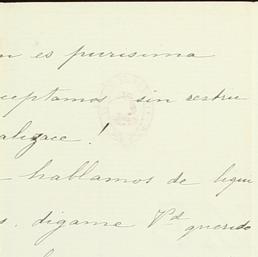 n es purisima
ceptamos sin restri
alizace!
hablamos de liqui
s. digame Vd querido